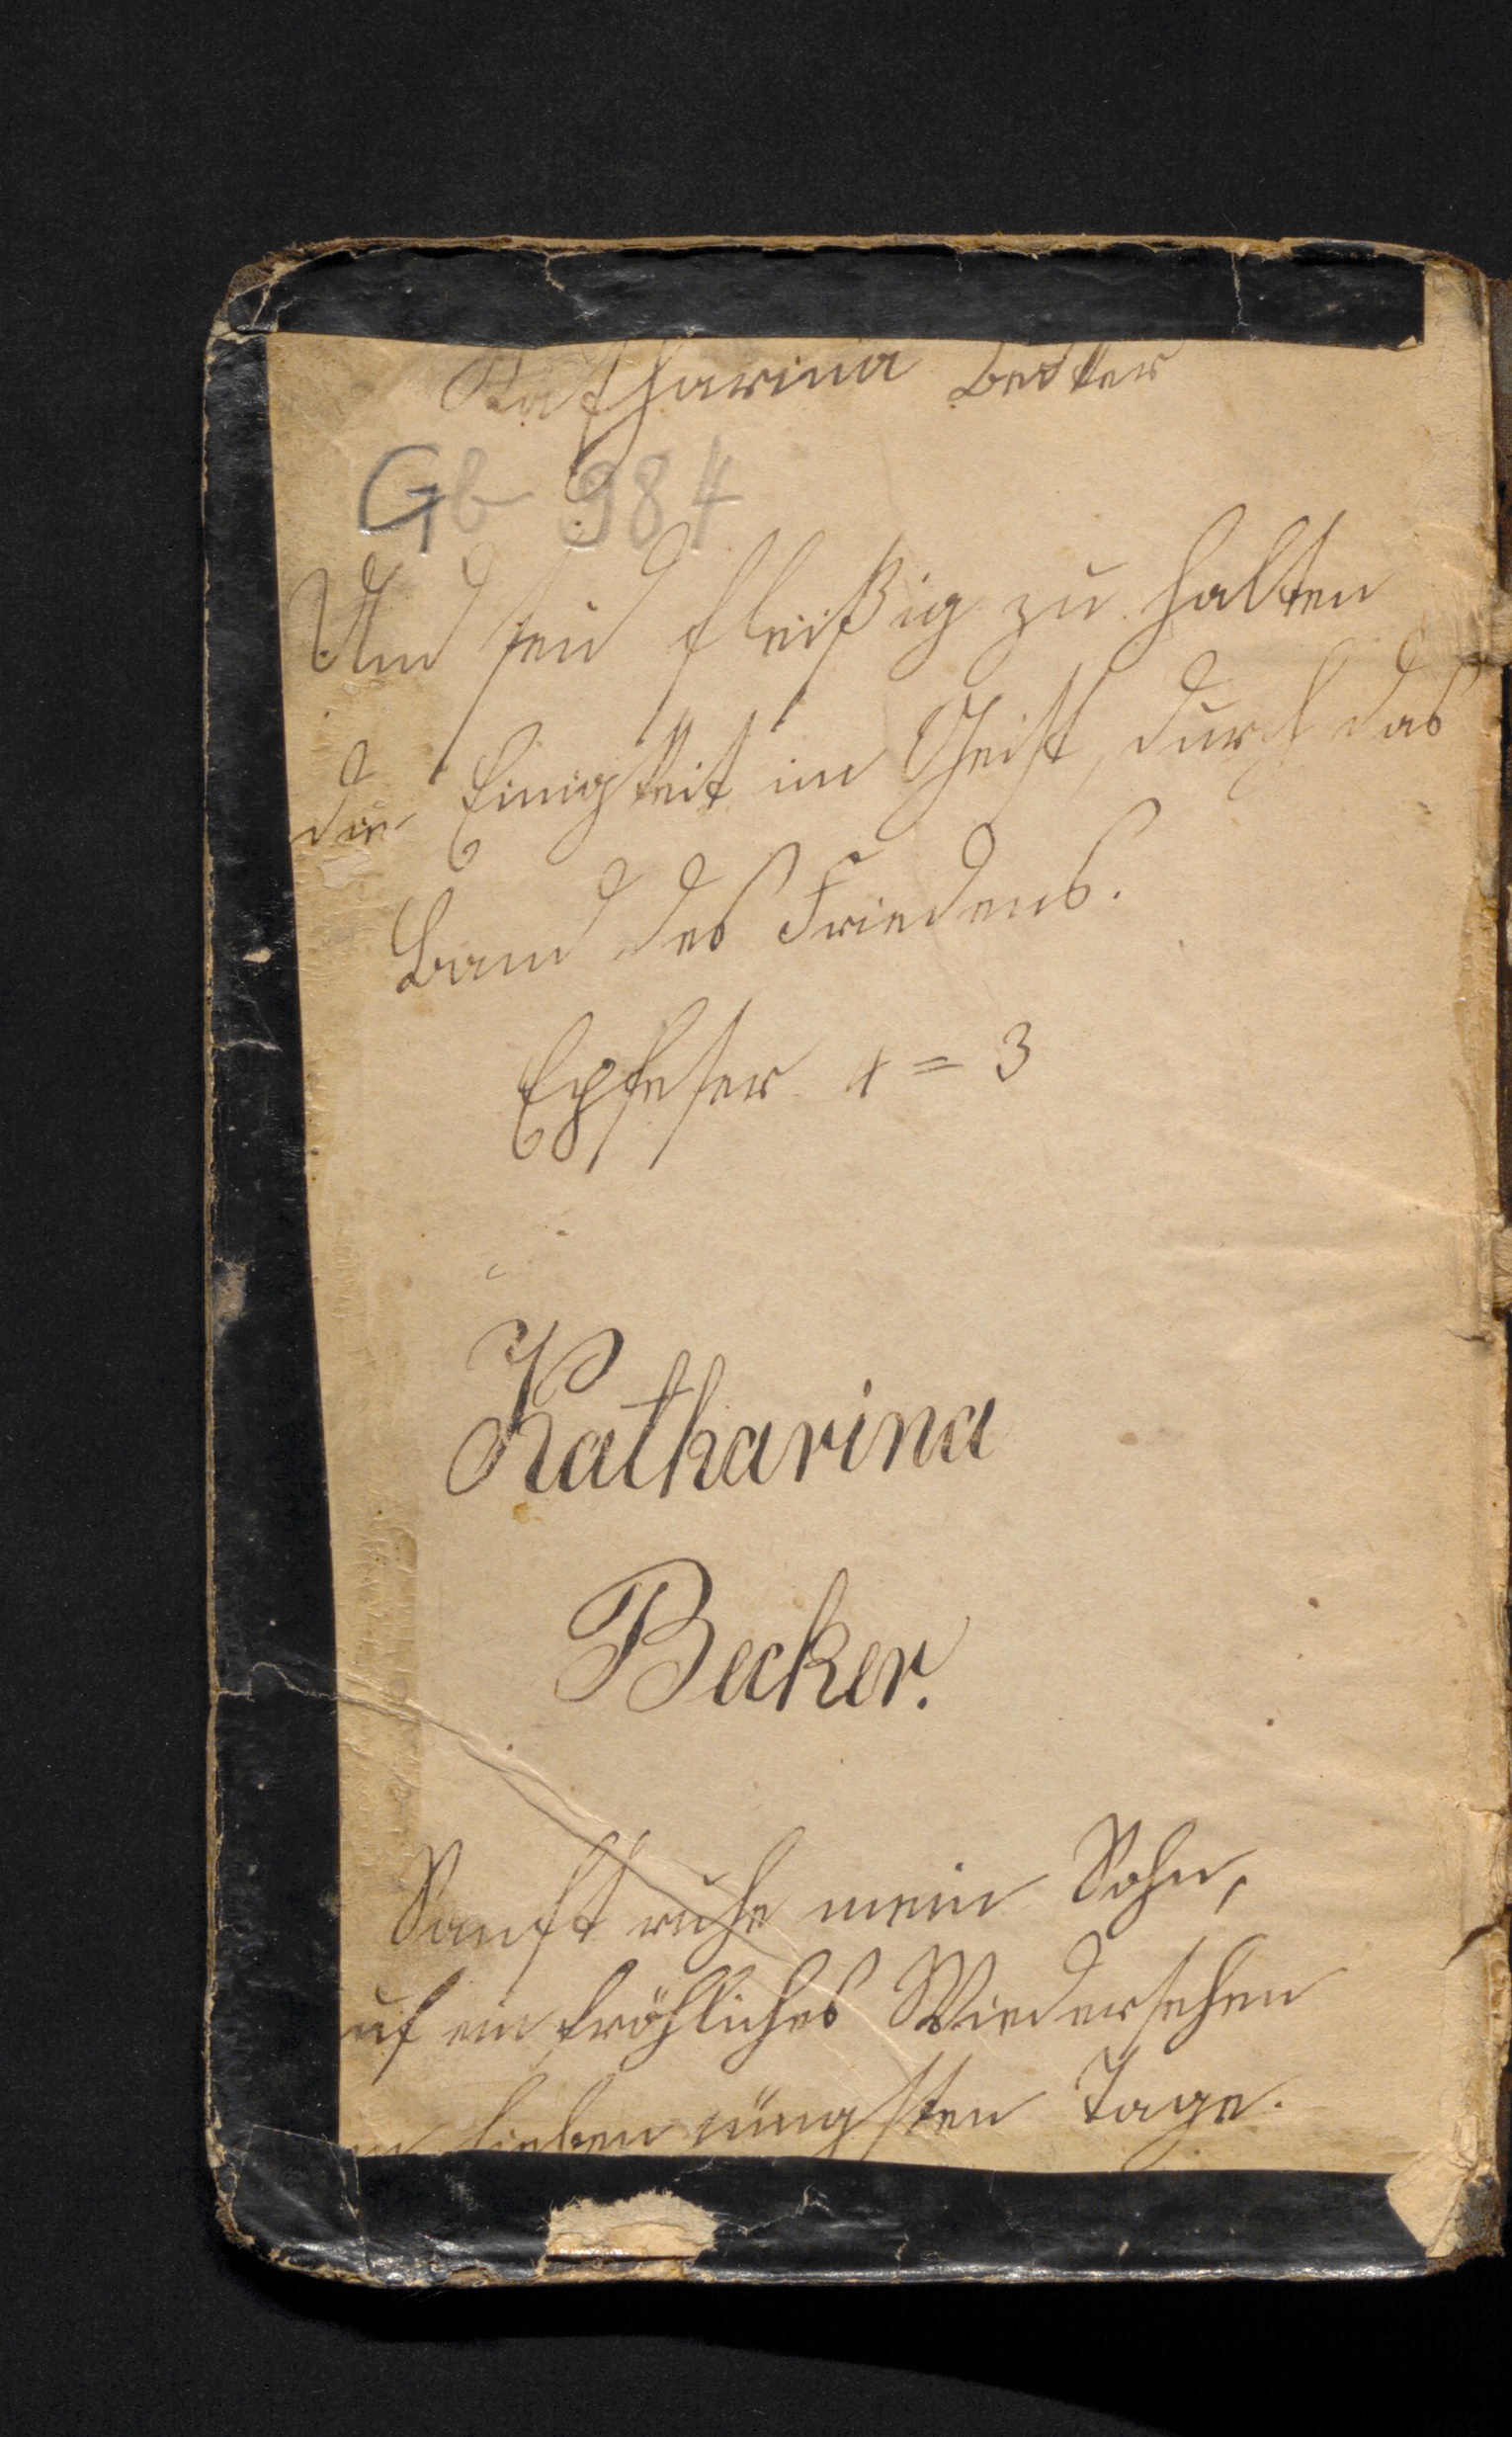 Katharina Becker
Gb 984
Und seid fleißig zu halten
die Einigkeit im Geist, durch das
Band des Friedens.
Epheser 4 = 3
Katharina
Becker.
Sanft ruhe mein Sohn,
uf ein fröhliches Wiedersehen
lieben jüngsten Tage.